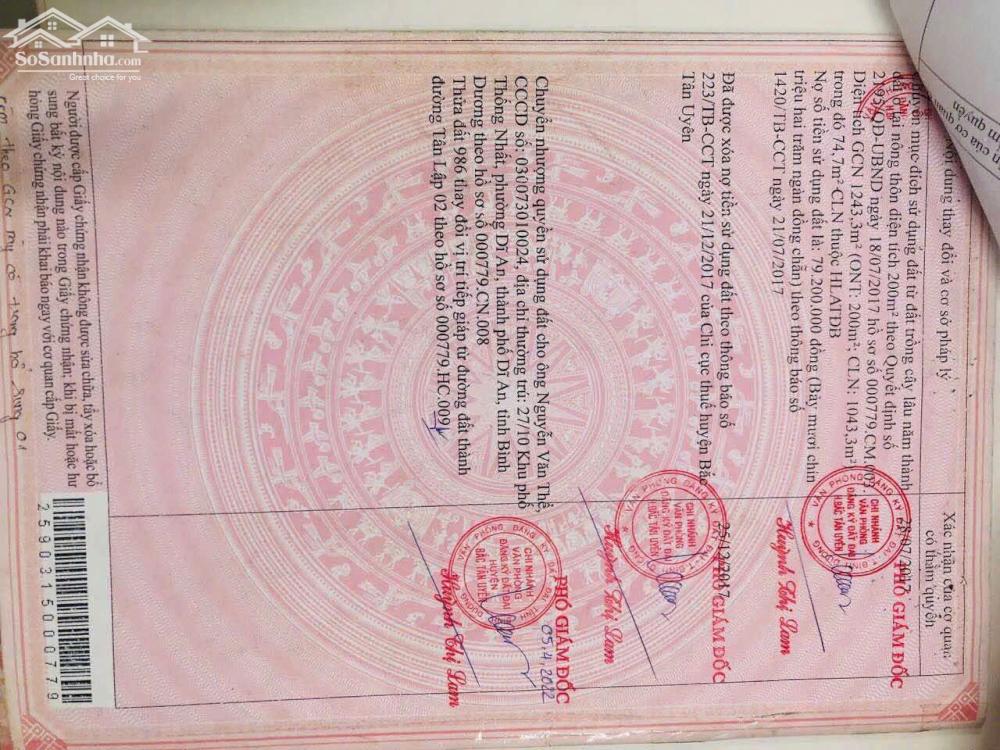 SoSanhnha.com
Great choice for you
Nội dung thay đổi và cơ sở pháp lý
Xác nhận của cơ quan
có thẩm quyền
Chuyển mục đích sử dụng đất từ đất trồng cây lâu năm thành
đất ở tại nông thôn diện tích 200m² theo Quyết định số
QĐ-UBND ngày 18/07/2017 hồ sơ số 000779.CM.
Diện tích GCN 1243,3m² (ONT: 200m²; CLN: 1043,3m²
trong đó 74,7m² CLN thuộc HLATĐB
Nợ số tiền sử dụng đất là: 79.200.000 đồng (Bảy mươi chín
triệu hai trăm ngàn đồng chẵn) theo thông báo số
1420/TB-CCT ngày 21/07/2017
PHÓ GIÁM ĐỐC
VĂN PHÒNG ĐĂNG KÝ ĐẤT ĐAI
CHI NHÁNH
VĂN PHÒNG
ĐĂNG KÝ ĐẤT ĐAI
H.BẮC TÂN UYÊN
Huỳnh Thị Lam
Đã được xóa nợ tiền sử dụng đất theo thông báo số
223/TB-CCT ngày 21/12/2017 của Chi cục thuế huyện Bắc
Tân Uyên
25/12/2017
PHÓ GIÁM ĐỐC
VĂN PHÒNG ĐĂNG KÝ ĐẤT
CHI NHÁNH
VĂN PHÒNG
ĐĂNG KÝ ĐẤT ĐAI
H.BẮC TÂN UYÊN
Huỳnh Thị Lam
Chuyển nhượng quyền sử dụng đất cho ông Nguyễn Văn Thế,
CCCD số: 030073010024, địa chỉ thường trú: 27/10 Khu phố
Thống Nhất, phường Dĩ An, thành phố Dĩ An, tỉnh Bình
Dương theo hồ sơ số 000779.CN.008
Thửa đất 986 thay đổi vị trí tiếp giáp từ đường đất thành
đường Tân Lập 02 theo hồ sơ số 000779.HC.009
05.4.2022
PHÓ GIÁM ĐỐC
VĂN PHÒNG ĐĂNG KÝ ĐẤT ĐAI TỈNH BÌNH DƯƠNG
CHI NHÁNH
VĂN PHÒNG
ĐĂNG KÝ ĐẤT ĐAI
HUYỆN
BẮC TÂN UYÊN
Huỳnh Thị Lam
Người được cấp Giấy chứng nhận không được sửa chữa, tẩy xóa hoặc bổ
sung bất kỳ nội dung nào trong Giấy chứng nhận; khi bị mất hoặc hư
hỏng Giấy chứng nhận phải khai báo ngay với cơ quan cấp Giấy.
theo GCN này có trang bổ sung 01
259031500007​79